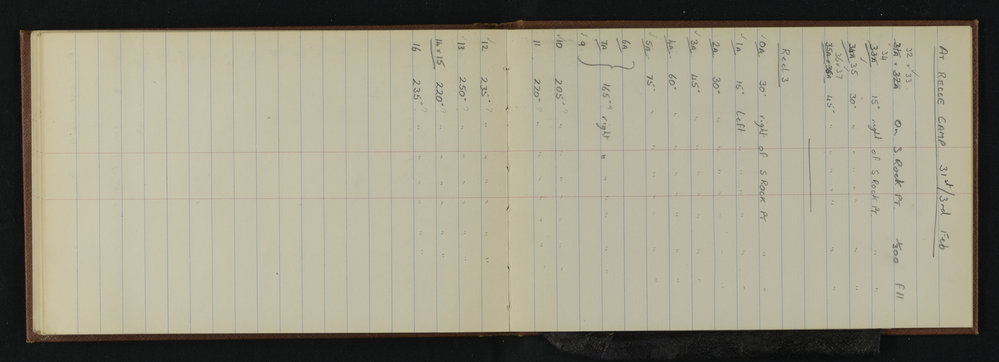 At RECCE CAMP 31st/3rd Feb
32 + 33
31A + 32A On S. Rock Pt. 1/200 F11
34
33A 15° right of S. Rock Pt. " "
34A 35 30° " " " " " "
36+37
35A+36A 45° " " " " " "
Reel 3
√ 0A 30° right of S Rock Pt. "
√ 1A 15° Left " " " " "
√ 2A 30° " " " " " "
√ 3A 45° " " " " " "
√ 4A 60° " " " " " "
√ 5A 75° " " " " " "
6A
7A } 165°? right " " " " "
√ 9
√ 10 205°? " " " " " "
11 220°? " " " " " "
√ 12 235°? " " " " " "
√ 13 250°? " " " " " "
14+15 220°? " " " " " "
16 235°? " " " " " "